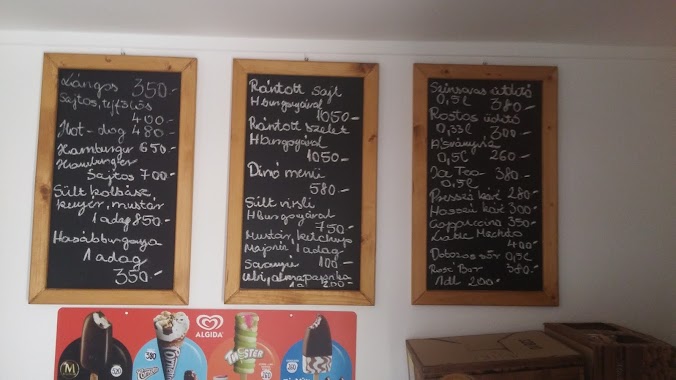 Lángos 350.-
Sajtos, tejfölös
400.-
Hot-dog 480.-
Hamburger 650.-
Hamburger
Sajtos 700.-
Sült kolbász,
kenyér, mustár
1 adag 850.-
Hasábburgonya
1 adag
350.-
Rántott sajt
Hburgonyával
1050.-
Rántott szelet
Hburgonyával
1050.-
Dinó menü
580.-
Sült virsli
Hburgonyával
750.-
Mustár, ketchup
Majonéz 1 adag
100.-
Savanyú
ubi, almapaprika
200.-
Színsavas üdítő
0,5l 380.-
Rostos üdítő
0,33l 300.-
Ásványvíz
0,5l 260.-
380.-
0,5l
Presszó kávé 280.-
Hosszú kávé 300.-
Cappuccino 350.-
400.-
Dobozos sör 0,5l
1dl 200.-
ALGIDA
TWISTER